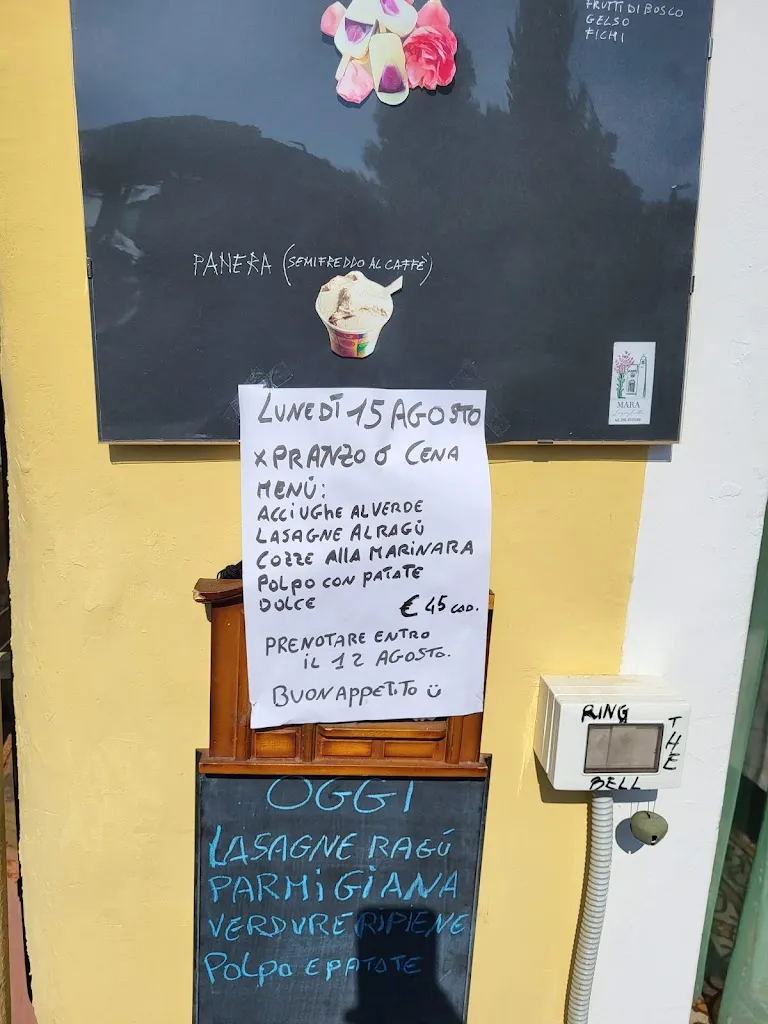 FRUTTI DI BOSCO
GELSO
FICHI
PANERA (SEMIFREDDO AL CAFFÈ)
MARA
LUNEDÌ 15 AGOSTO
X PRANZO O CENA
MENÙ:
ACCIUGHE AL VERDE
LASAGNE AL RAGÙ
COZZE ALLA MARINARA
POLPO CON PATATE
DOLCE € 45 CAD.
PRENOTARE ENTRO
IL 12 AGOSTO.
BUON APPETITO Ü
RING
THE
BELL
OGGI
LASAGNE RAGÚ
PARMIGIANA
VERDURE RIPIENE
POLPO E PATATE